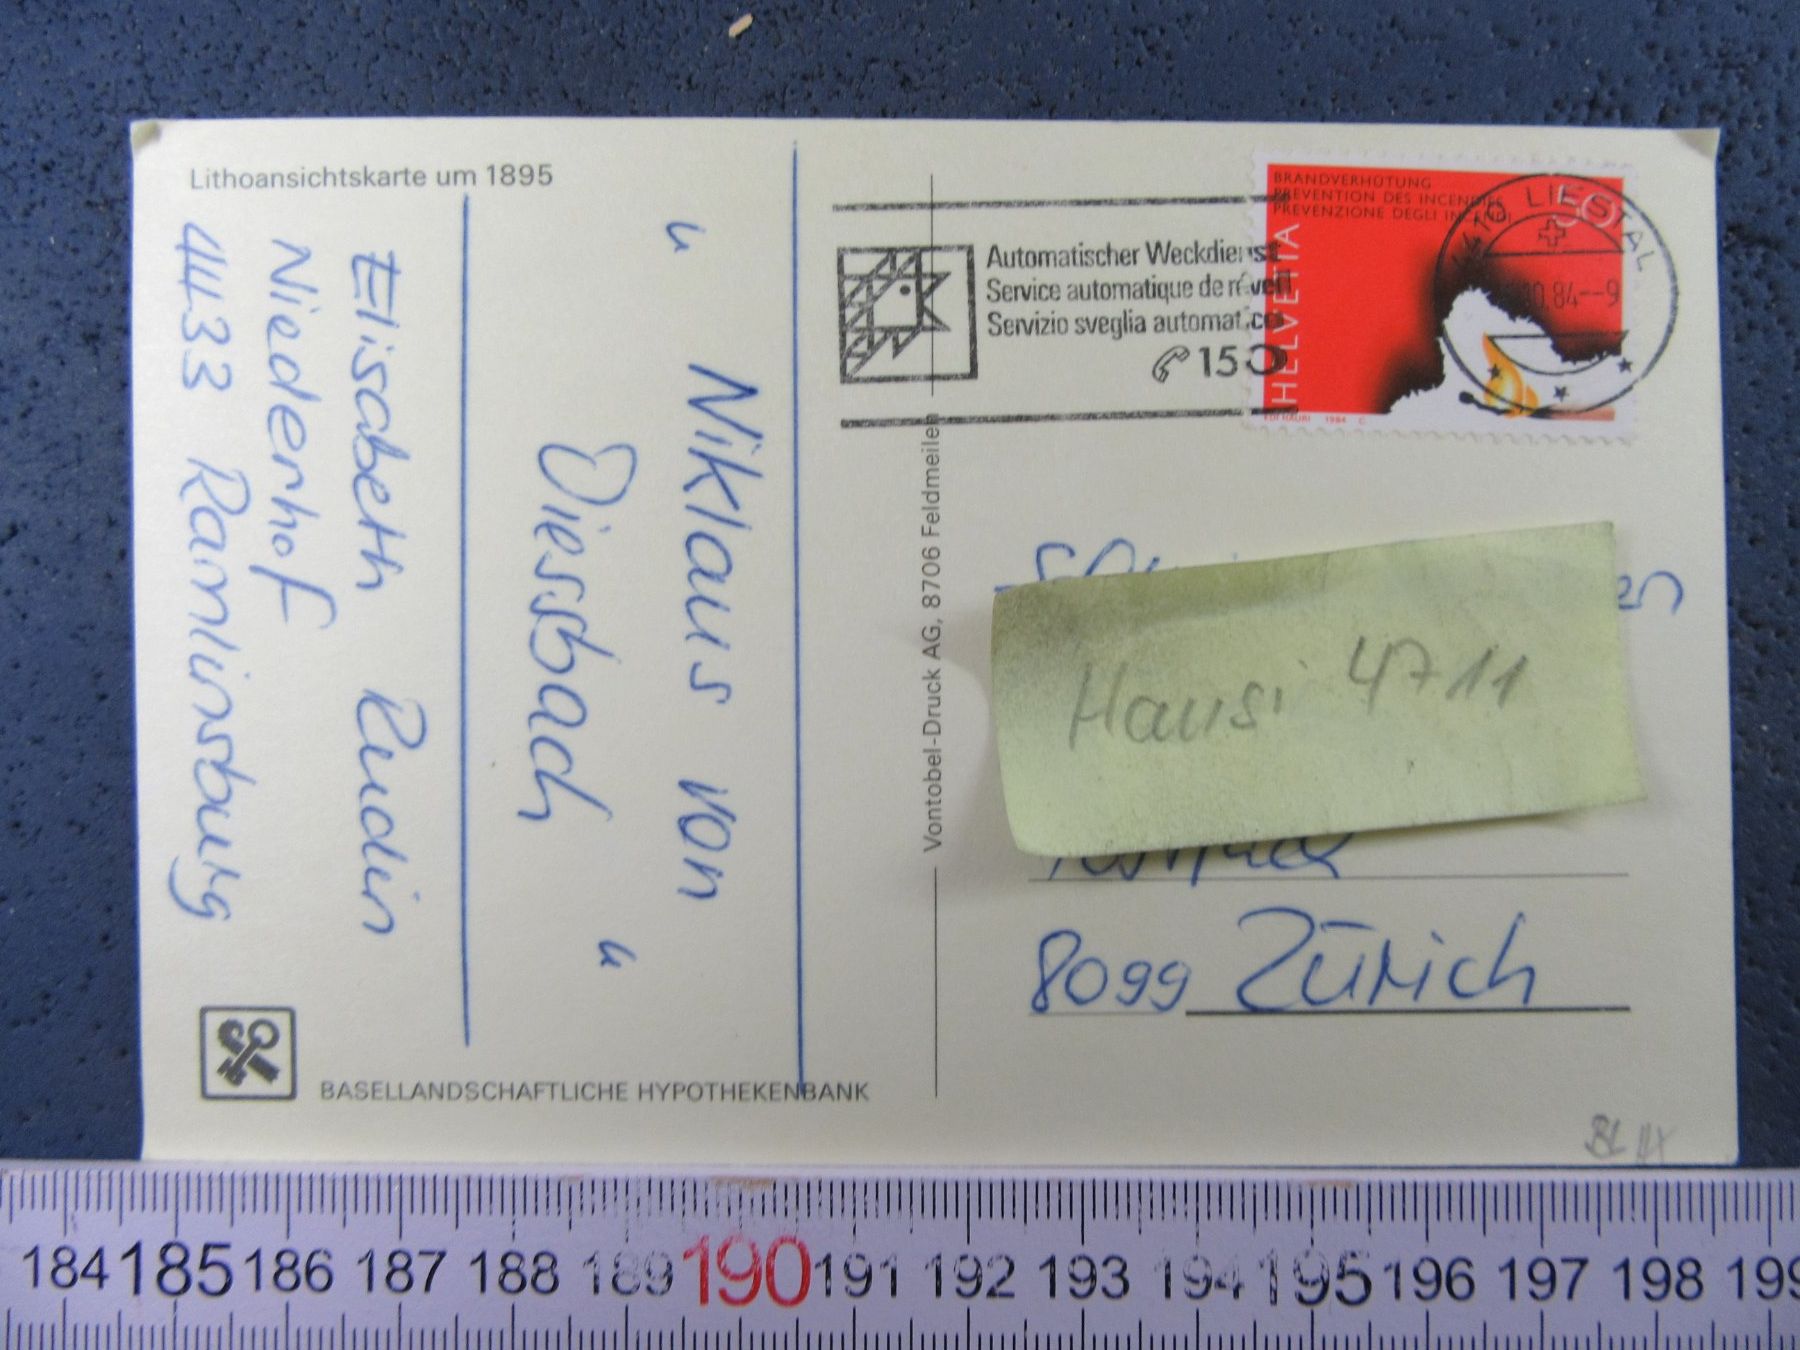 Lithoansichtskarte um 1895
„ Niklaus von
Diessbach "
Elisabeth Rudin
Niederhof
4433 Ramlinsburg
BASELLANDSCHAFTLICHE HYPOTHEKENBANK
Vontobel-Druck AG, 8706 Feldmeilen
Automatischer Weckdienst
Service automatique de réveil
Servizio sveglia automatico
150
BRANDVERHÜTUNG
PREVENTION DES INCENDIES
PREVENZIONE DEGLI INCENDI
HELVETIA
50
1984
4410 LIESTAL
10.84--9
Hausi 4711
8099 Zürich
BL
184 185 186 187 188 189 190 191 192 193 194 195 196 197 198 199